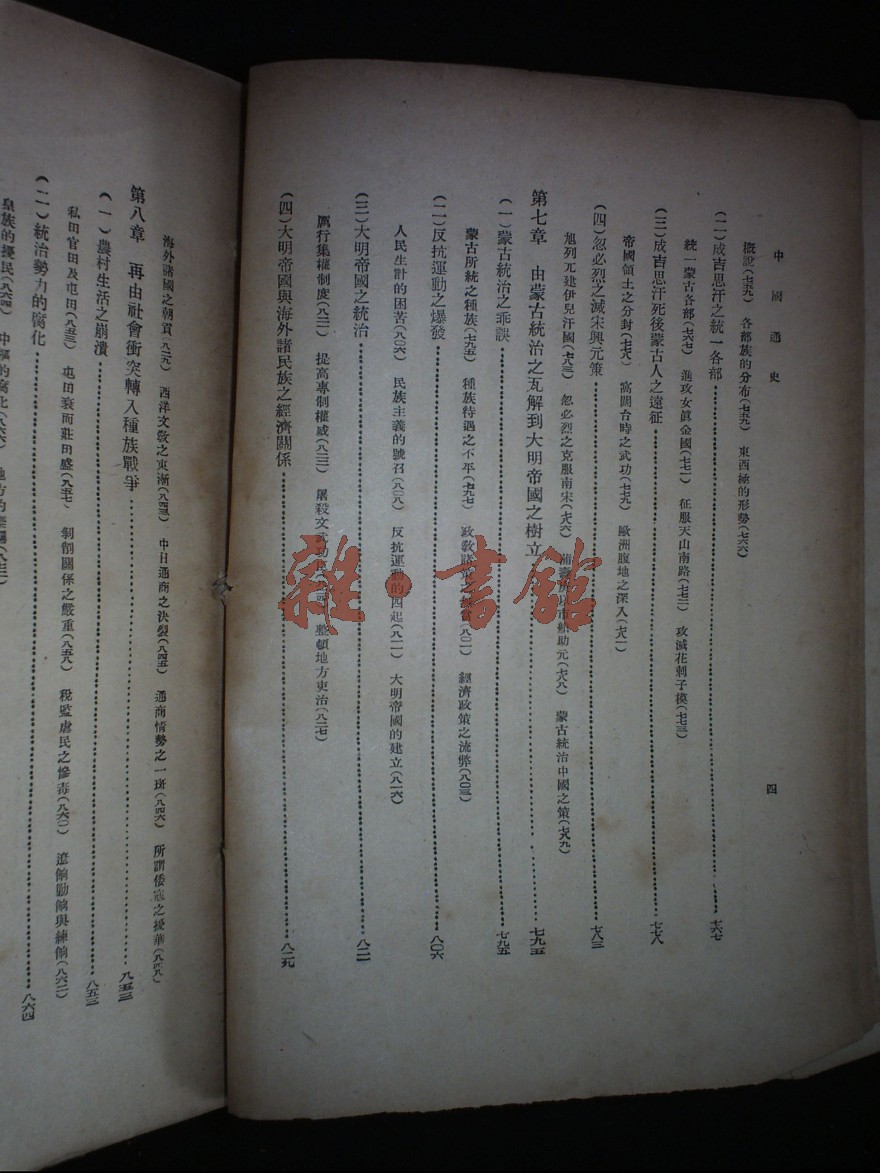 中國通史
四
概說(七五九) 各部族的分布(七五九) 東西極的形勢(七六六)
(二)成吉思汗之統一各部 七六七
統一蒙古各部(七六七) 進攻女眞金國(七七一) 征服天山南路(七七二) 攻滅花剌子模(七七三)
(三)成吉思汗死後蒙古人之遠征 七七八
帝國領土之分封(七七八) 窩闊台時之武功(七七九) 歐洲腹地之深入(七八一)
(四)忽必烈之滅宋興元策 七八三
旭列兀建伊兒汗國(七八三) 忽必烈之克服南宋(七八六) 蒲壽庚以市舶助元(七八八) 蒙古統治中國之策(七八九)
第七章 由蒙古統治之瓦解到大明帝國之樹立 七九五
(一)蒙古統治之乖誤 七九五
蒙古所統之種族(七九五) 種族待遇之不平(七九七) 政敎 (八〇一) 經濟政策之流弊(八〇三)
(二)反抗運動之爆發 八〇六
人民生計的困苦(八〇六) 民族主義的號召(八〇八) 反抗運動的四起(八一一) 大明帝國的建立(八一六)
(三)大明帝國之統治 八二一
厲行集權制度(八二一) 提高專制權威(八二三) 屠殺文武功臣 整頓地方吏治(八二七)
(四)大明帝國與海外諸民族之經濟關係 八二九
海外諸國之朝貢(八二九) 西洋文敎之東漸(八四三) 中日通商之決裂(八四五) 通商情勢之一斑(八四六) 所謂倭寇之擾華(八四九)
第八章 再由社會衝突轉入種族戰爭 八五三
(一)農村生活之崩潰 八五三
私田官田及屯田(八五三) 屯田衰而莊田盛(八五七) 剝削關係之嚴重(八五九) 稅監虐民之慘毒(八六〇) 遼餉勦餉與練餉(八六二)
(二)統治勢力的腐化 八六四
皇族的擾民(八六四)
雜·書館